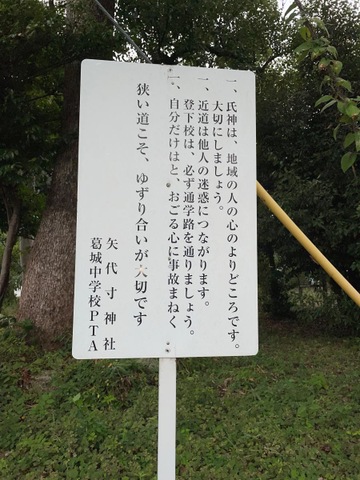 一、氏神は、地域の人の心のよりどころです。
大切にしましょう。
一、近道は他人の迷惑につながります。
登下校は、必ず通学路を通りましょう。
一、自分だけはと、おごる心に事故まねく
狭い道こそ、ゆずり合いが大切です
矢代寸神社
葛城中学校PTA